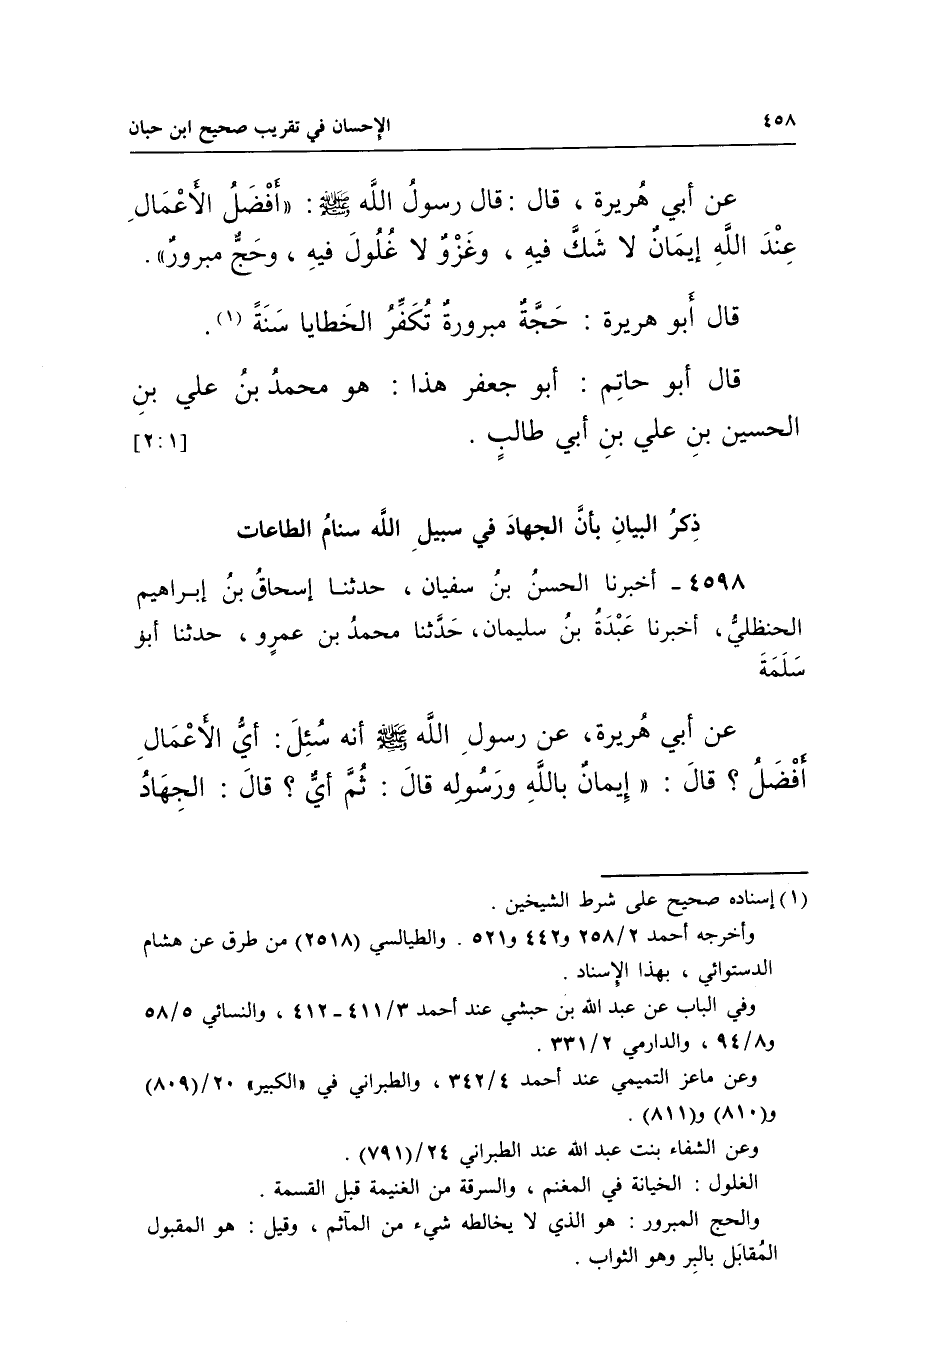 ٤٥٨
الإحسان في تقريب صحيح ابن حبان
عن أبي هُريرة ، قال : قال رسولُ اللَّه ﷺ : «أَفْضَلُ الأَعْمَالِ
عِنْدَ اللَّهِ إيمَانٌ لا شَكَّ فيهِ ، وغَزْوٌ لا غُلُولَ فيهِ ، وحَجٌّ مبرورٌ» .
قال أَبو هريرة : حَجَّةٌ مبرورةٌ تُكَفِّرُ الخَطايا سَنَةً (١) .
قال أبو حاتِم : أبو جعفر هذا : هو محمدُ بنُ علي بنِ
الحسين بنِ علي بنِ أبي طالبٍ .
[٢:١]
ذِكرُ البيانِ بأنَّ الجهادَ في سبيلِ اللَّه سنامُ الطاعات
٤٥٩٨ - أخبرنا الحسنُ بنُ سفيان ، حدثنا إسحاقُ بنُ إبراهيم
الحنظليُّ، أخبرنا عَبْدَةُ بنُ سليمان، حَدَّثنا محمدُ بن عمرٍو ، حدثنا أبو
سَلَمَةَ
عن أبي هُريرة، عن رسولِ اللَّه ﷺ أنه سُئِلَ : أيُّ الأَعْمَالِ
أَفْضَلُ ؟ قالَ : « إِيمانٌ باللَّهِ ورَسُولِه قالَ : ثُمَّ أيٌّ ؟ قالَ : الجِهَادُ
(١) إسناده صحيح على شرط الشيخين .
وأخرجه أحمد ٢٥٨/٢ و٤٤٢ و٥٢١ . والطيالسي (٢٥١٨) من طرق عن هشام
الدستوائي ، بهذا الإسناد .
وفي الباب عن عبد الله بن حبشي عند أحمد ٤١١/٣ - ٤١٢ ، والنسائي ٥٨/٥
و٩٤/٨ ، والدارمي ٣٣١/٢ .
وعن ماعز التميمي عند أحمد ٣٤٢/٤ ، والطبراني في «الكبير» ٢٠/(٨٠٩)
و(٨١٠) و(٨١١) .
وعن الشفاء بنت عبد الله عند الطبراني ٢٤/(٧٩١) .
الغلول : الخيانة في المغنم ، والسرقة من الغنيمة قبل القسمة .
والحج المبرور : هو الذي لا يخالطه شيء من المآثم ، وقيل : هو المقبول
المُقابَل بالبِر وهو الثواب .